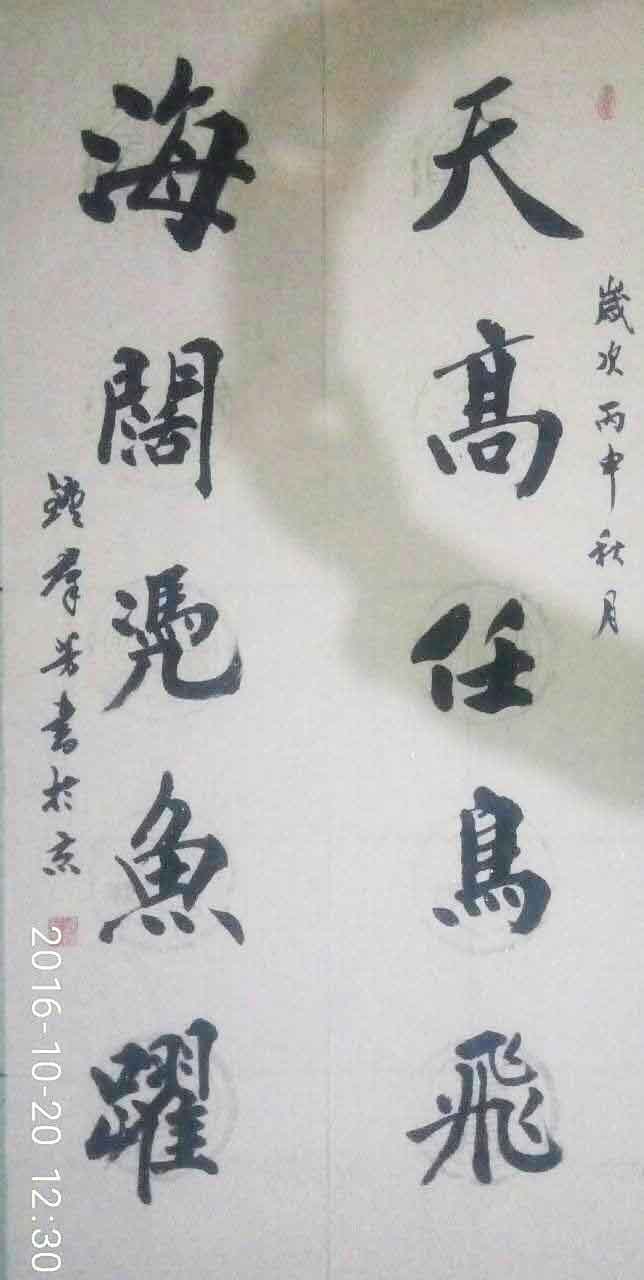 歲次丙申秋月
天高任鳥飛
海闊凴魚躍
鍾群芳書於京
2016-10-20 12:30